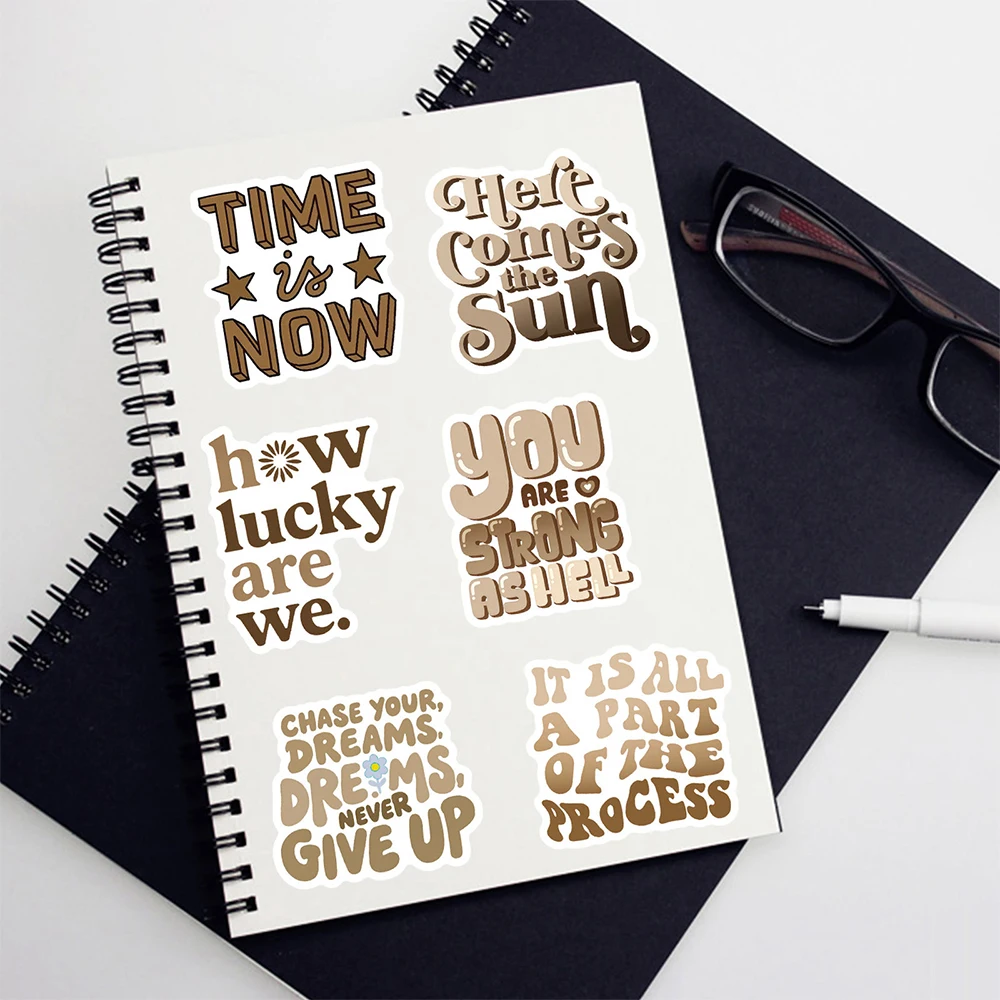 TIME
is
NOW
Here
Comes
the
Sun
how
lucky
are
we.
YOU
ARE
STRONG
AS HELL
CHASE YOUR,
DREAMS.
DREAMS,
NEVER
GIVE UP
IT IS ALL
A PART
OF THE
PROCESS